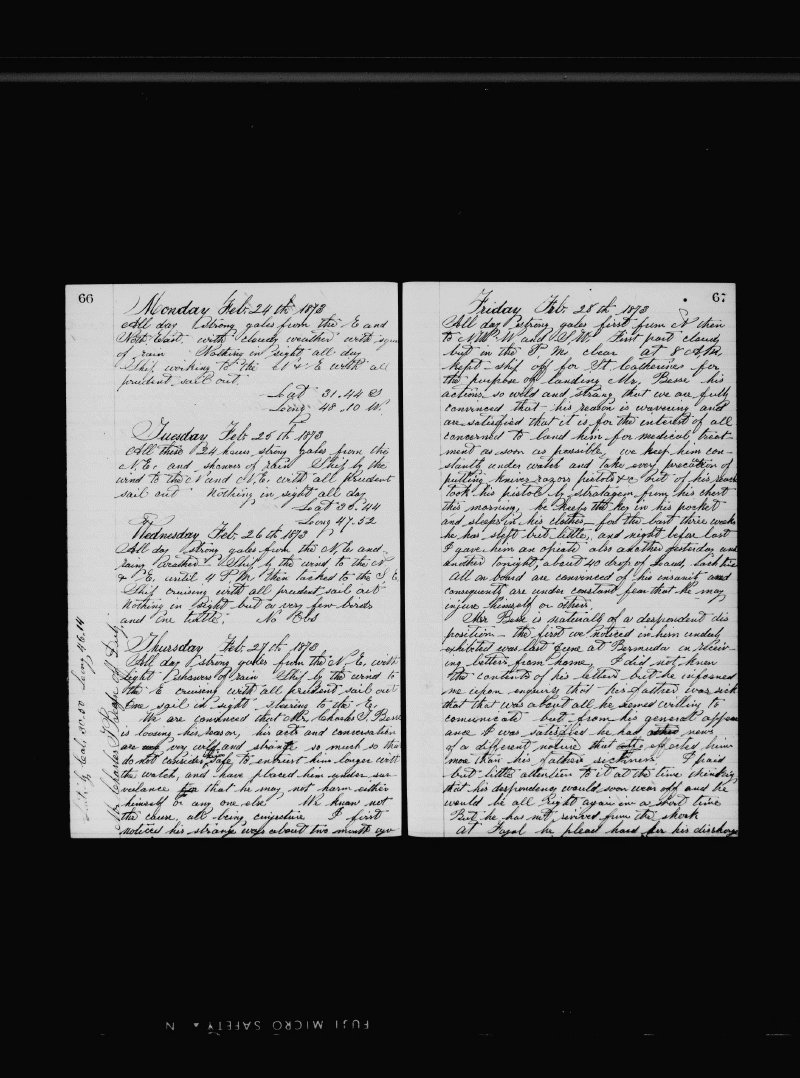 66
Monday Feb. 24th 1873
All day strong gales from the E and
North East with cloudy weather with signs
of rain Nothing in sight all day
Ship working to the N & E with all
prudent sail out
Lat 31.44 S
Long 48.10 W.
Tuesday Feb 25th 1873
All these 24 hours strong gales from the
N.E. and showers of rain Ship by the
wind to the N and N.E. with all prudent
sail out Nothing in sight all day
Lat 30.44
Long 47.52
Wednesday Feb. 26th 1873
All day strong gales from the N.E. and
rainy weather Ship by the wind to the N
& E. until 4 P.M. then tacked to the S.E.
Ship cruising with all prudent sail out
Nothing in sight but a very few birds
and one turtle. No Obs
Thursday Feb. 27th 1873
All day strong gales from the N.E. with
light showers of rain Ship by the wind to
the E cruising with all prudent sail out
One sail in sight steering to the E.
We are convinced that Mr. Charles S. Besse
is loosing his reason, his acts and conversation
are very wild and strange so much so that
do not consider safe to entrust him longer with
the watch, and have placed him under sur-
veilance that he may not harm either
himself or any one else We know not
the cause, all being conjecture I first
noticed his strange ways about two month ago
Lat by Cal. 30.50 Long 46.14
Mr. Charles S. Besse off Duty.
67
Friday Feb. 28th 1873
All day strong gales first from N then
to NW W and S.W. First part cloudy
but in the P.M. clear at 8 A.M.
kept ship off for St. Catherines for
the purpose of landing Mr. Besse his
actions so wild and strang that we are fully
convinced that his reason is wavering and
are satisfied that it is for the interest of all
concerned to land him for medical treat-
ment as soon as possible, we keep him con-
stantly under watch and take every precation of
putting knives razors pistols &c out of his reach
took his pistole by stratagem from his chest
this morning, he keeps the key in his pocket
and sleeps in his clothes for the last three weeks
he has slept but little, and night before last
I gave him an opiate also another yesterday and
another tonight, about 40 drop of Laud, each time
All on board are convinced of his insanity and
consequents are under constant fear that he may
injure himself or others.
Mr Besse is naturaly of a despondent dis
position the first we noticed in him unduly
exhibited was last June at Bermuda on receiv-
ing letters from home, I did not know
the contents of his letters but he informed
me upon enquiry that his father was sick
that that was about all he seemed willing to
comunicate but from his general appear
ance I was satisfied he had news
of a different nature that effected him
more than his fathers sickness I paid
but little attention to it at the time thinking
that his despondency would soon wear off and he
would be all right again in a short time
But he has not revived from the shock
At Fayal he plead hard for his discharge
FUJI MICRO SAFETY N